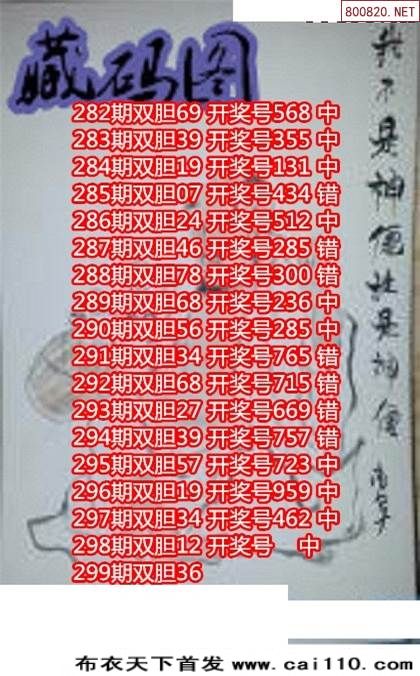 800820.NET
藏码图
282期双胆69 开奖号568 中
283期双胆39 开奖号355 中
284期双胆19 开奖号131 中
285期双胆07 开奖号434 错
286期双胆24 开奖号512 中
287期双胆46 开奖号285 错
288期双胆78 开奖号300 错
289期双胆68 开奖号236 中
290期双胆56 开奖号285 中
291期双胆34 开奖号765 错
292期双胆68 开奖号715 错
293期双胆27 开奖号669 错
294期双胆39 开奖号757 错
295期双胆57 开奖号723 中
296期双胆19 开奖号959 中
297期双胆34 开奖号462 中
298期双胆12 开奖号 中
299期双胆36
我不是神但然是神僧
布衣天下首发 www.cai110.com